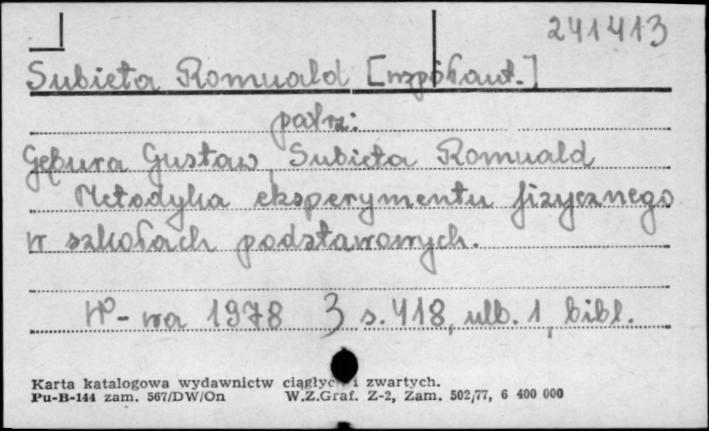 241413
Subieta Romuald [współaut.]
patrz:
Gębura Gustaw, Subieta Romuald
Metodyka eksperymentu fizycznego
w szkołach podstawowych.
W-wa 1978 3 s. 418, ulb. 1, bibl.
Karta katalogowa wydawnictw ciągłych i zwartych.
Pu-B-144 zam. 567/DW/On W.Z.Graf. Z-2, Zam. 502/77, 6 400 000